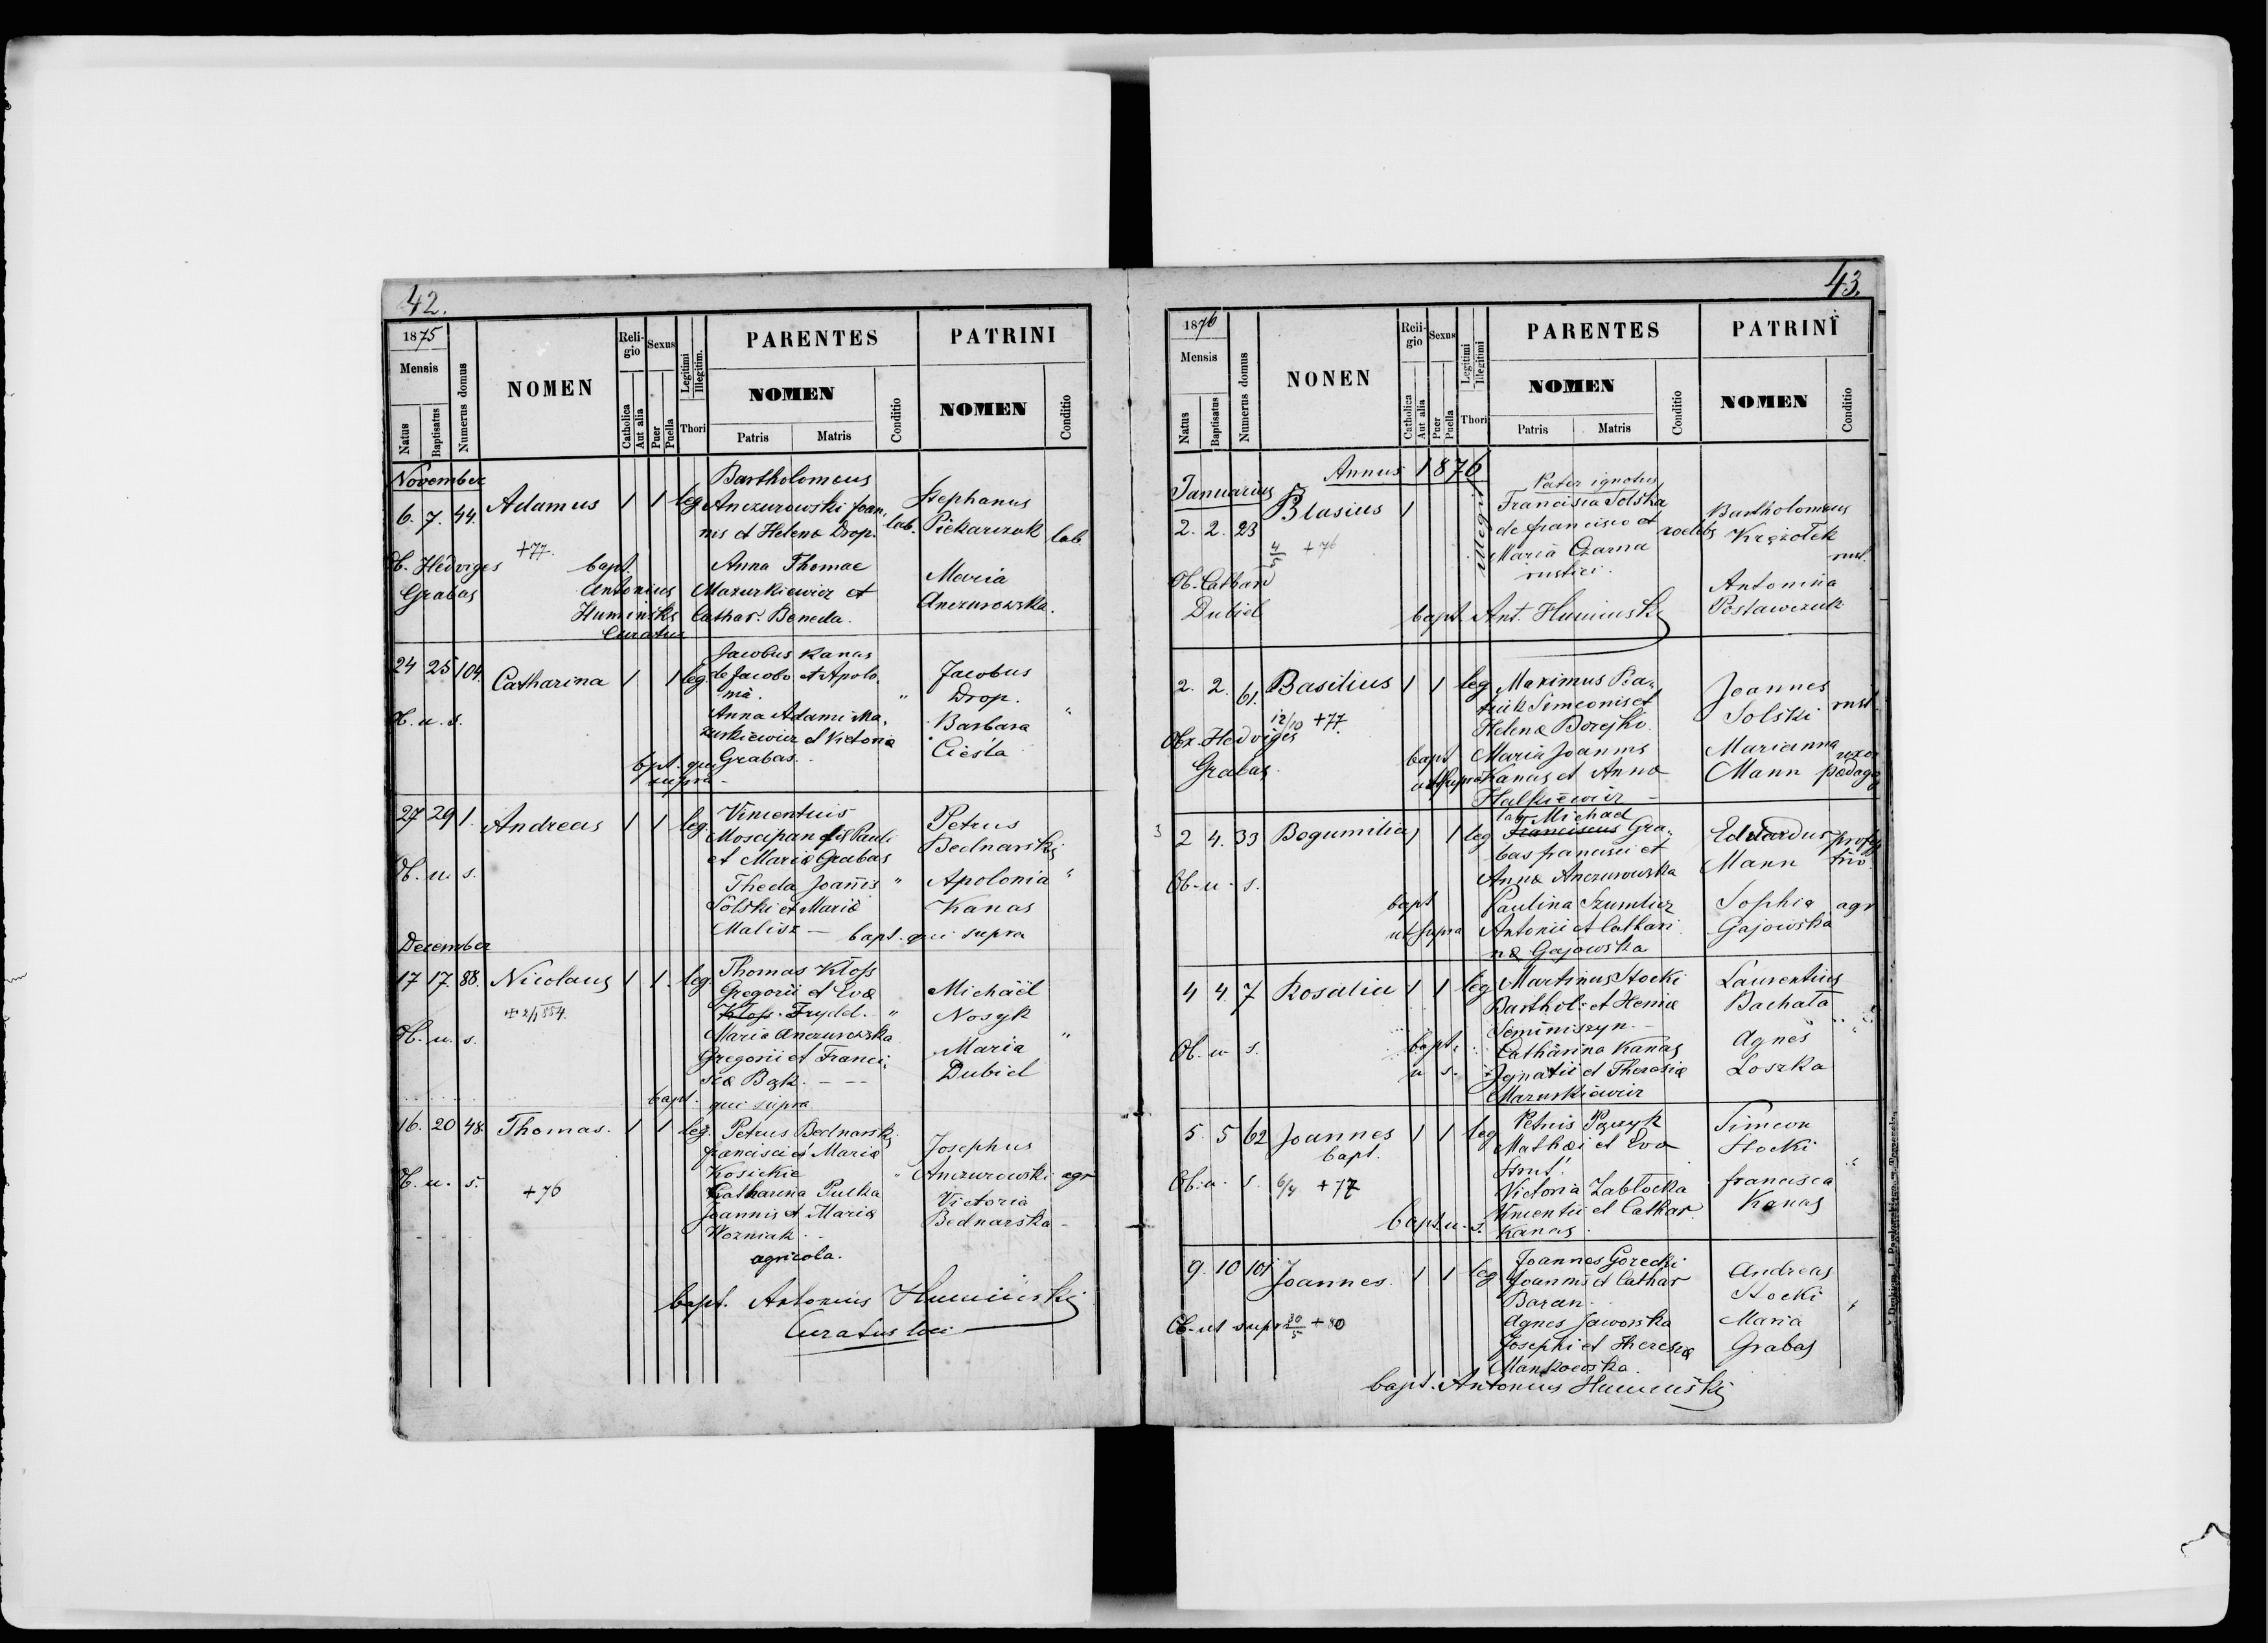 42.
1875
Mensis
Natus
Baptisatus
Numerus domus
NOMEN
Reli-
gio
Catholica
Aut alia
Sexus
Puer
Puella
Legitimi
Illegitim.
Thori
PARENTES
NOMEN
Patris
Matris
Conditio
PATRINI
NOMEN
Conditio
November
6. 7. 44. Adamus 1 1 leg.
+77.
Ob. Hedviges
Grabas
bapt.
Antonius
Humiński
Curatus
Bartholomeus
Anczurowski Joan.
nis et Helena Drop. lab.
Anna Thomae
Mazurkiewicz et
Cathar. Beneda.
Stephanus
Piekarczuk lab.
Maria
Anczurowska.
24 25 104. Catharina 1 1 leg.
Ob. u. s.
Jacobus Kanas
de Jacobo et Apolo.
nia. "
Anna Adami Ma.
zurkiewicz et Victoria
Grabas.
bpt. qui
supra -
Jacobus
Drop. "
Barbara
Cieśla
27 29 1. Andreas 1 1 leg.
Ob. u. s.
Vincentius
Moscipan Pauli
et Maria Grabas
Theda Joanis "
Solski et Maria
Malisz — bapt. qui supra
Petrus
Bednarski
Apolonia "
Kanas
December
17 17. 88. Nicolaus 1 1. leg.
Ob. u. s.
Thomas Kloss
Gregorii et Eva
Kloss. Frydel. "
Maria Anczurowska
Gregorii et Franci.
sca Bąk. — —
bapt. qui supra
Michaël
Nosyk
Maria "
Dubiel
16. 20 48. Thomas. 1 1 leg.
Ob. u. s.
+76
Petrus Bednarski
francisci et Maria
Kosickie "
Catharina Pulka
Joannis et Maria
Wozniak.
agricola.
Josephus
Anczurowski agr
Victoria
Bednarska -
bapt. Antonius Humiński
Curatus loci
43.
1876
Mensis
Natus
Baptisatus
Numerus domus
NONEN
Reii-
gio
Catholica
Aut alia
Sexus
Puer
Puella
Legitimi
Illegitimi
Thori
PARENTES
NOMEN
Patris
Matris
Conditio
PATRINI
NOMEN
Conditio
Annus 1876
Januarius
2. 2. 23 Blasius 1 illegit
+76
Ob. Cathar
Dubiel
Pater ignotus
Francisca Solska
de francisco et
Maria Czarna
rustici.
bapt. Ant. Humiński
Bartholomeus
Krężołek rust.
Antonina
Postawczuk
2. 2. 61. Basilius 1 1 leg
12/10 +77.
Obx. Hedviges
Grabas.
bapt
ut supra
Maximus
Simeonis et
Helena Borejko
Maria Joannis
Kanas et Anna
Halkiewicz —
Joannes
Solski rust
Marianna uxor
Mann pædagog
2 4. 33 Bogumilia 1 1 leg
Ob. u. s.
bapt
ut supra
Michael
Franciscus Gra.
bas francisci et
Anna Anczurowska
Paulina Szumlicz
Antonii et Cathari
na Gajowska
Eduardus
Mann
Sophia agr
Gajowska
4 4. 7 Rosalia 1 1 leg
Ob. u. s.
bapt.
u s.
Martinus Stocki
Barthol. et Henia
Seminiszyn.
Catharina Kanas
Ignatii et Theresia
Mazurkiewicz
Laurentius
Bachata
Agnes "
Loszka
5. 5 62 Joannes 1 1 leg
bapt.
Ob. u. s. 6/4 +77
bapt. u. s.
Petrus Pączyk
Mathæi et Eva
Strut.
Victoria Zabłocka
Vincentii et Cathar.
Kanas.
Simeon
Stocki "
francisca
Kanas
9. 10 101 Joannes. 1 1 leg
Ob. ut supra 30/5 +80
Joannes Gorecki
Joannis et Cathar
Baran.
Agnes Jaworska
Josephi et Theresia
Mankowska.
Andreas
Stocki "
Maria
Grabas
bapt. Antonius Humiński